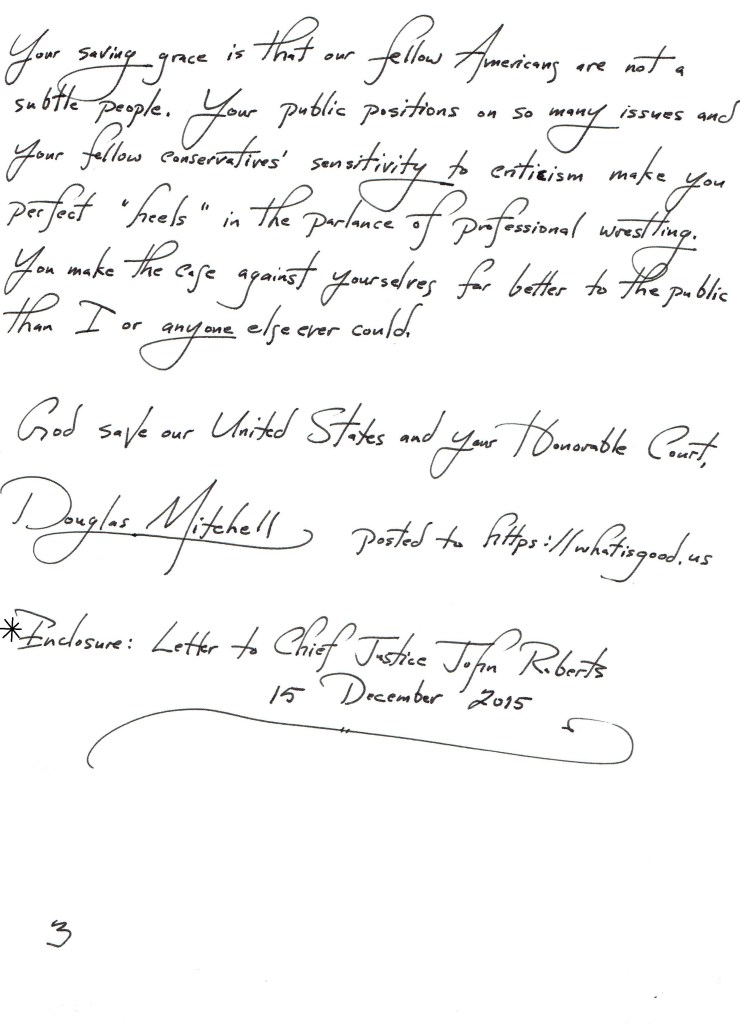 Your saving grace is that our fellow Americans are not a
subtle people. Your public positions on so many issues and
your fellow conservatives' sensitivity to criticism make you
perfect "heels" in the parlance of professional wrestling.
You make the case against yourselves far better to the public
than I or anyone else ever could.
God save our United States and your Honorable Court,
Douglas Mitchell posted to https://whatisgood.us
*Enclosure: Letter to Chief Justice John Roberts
15 December 2015
3